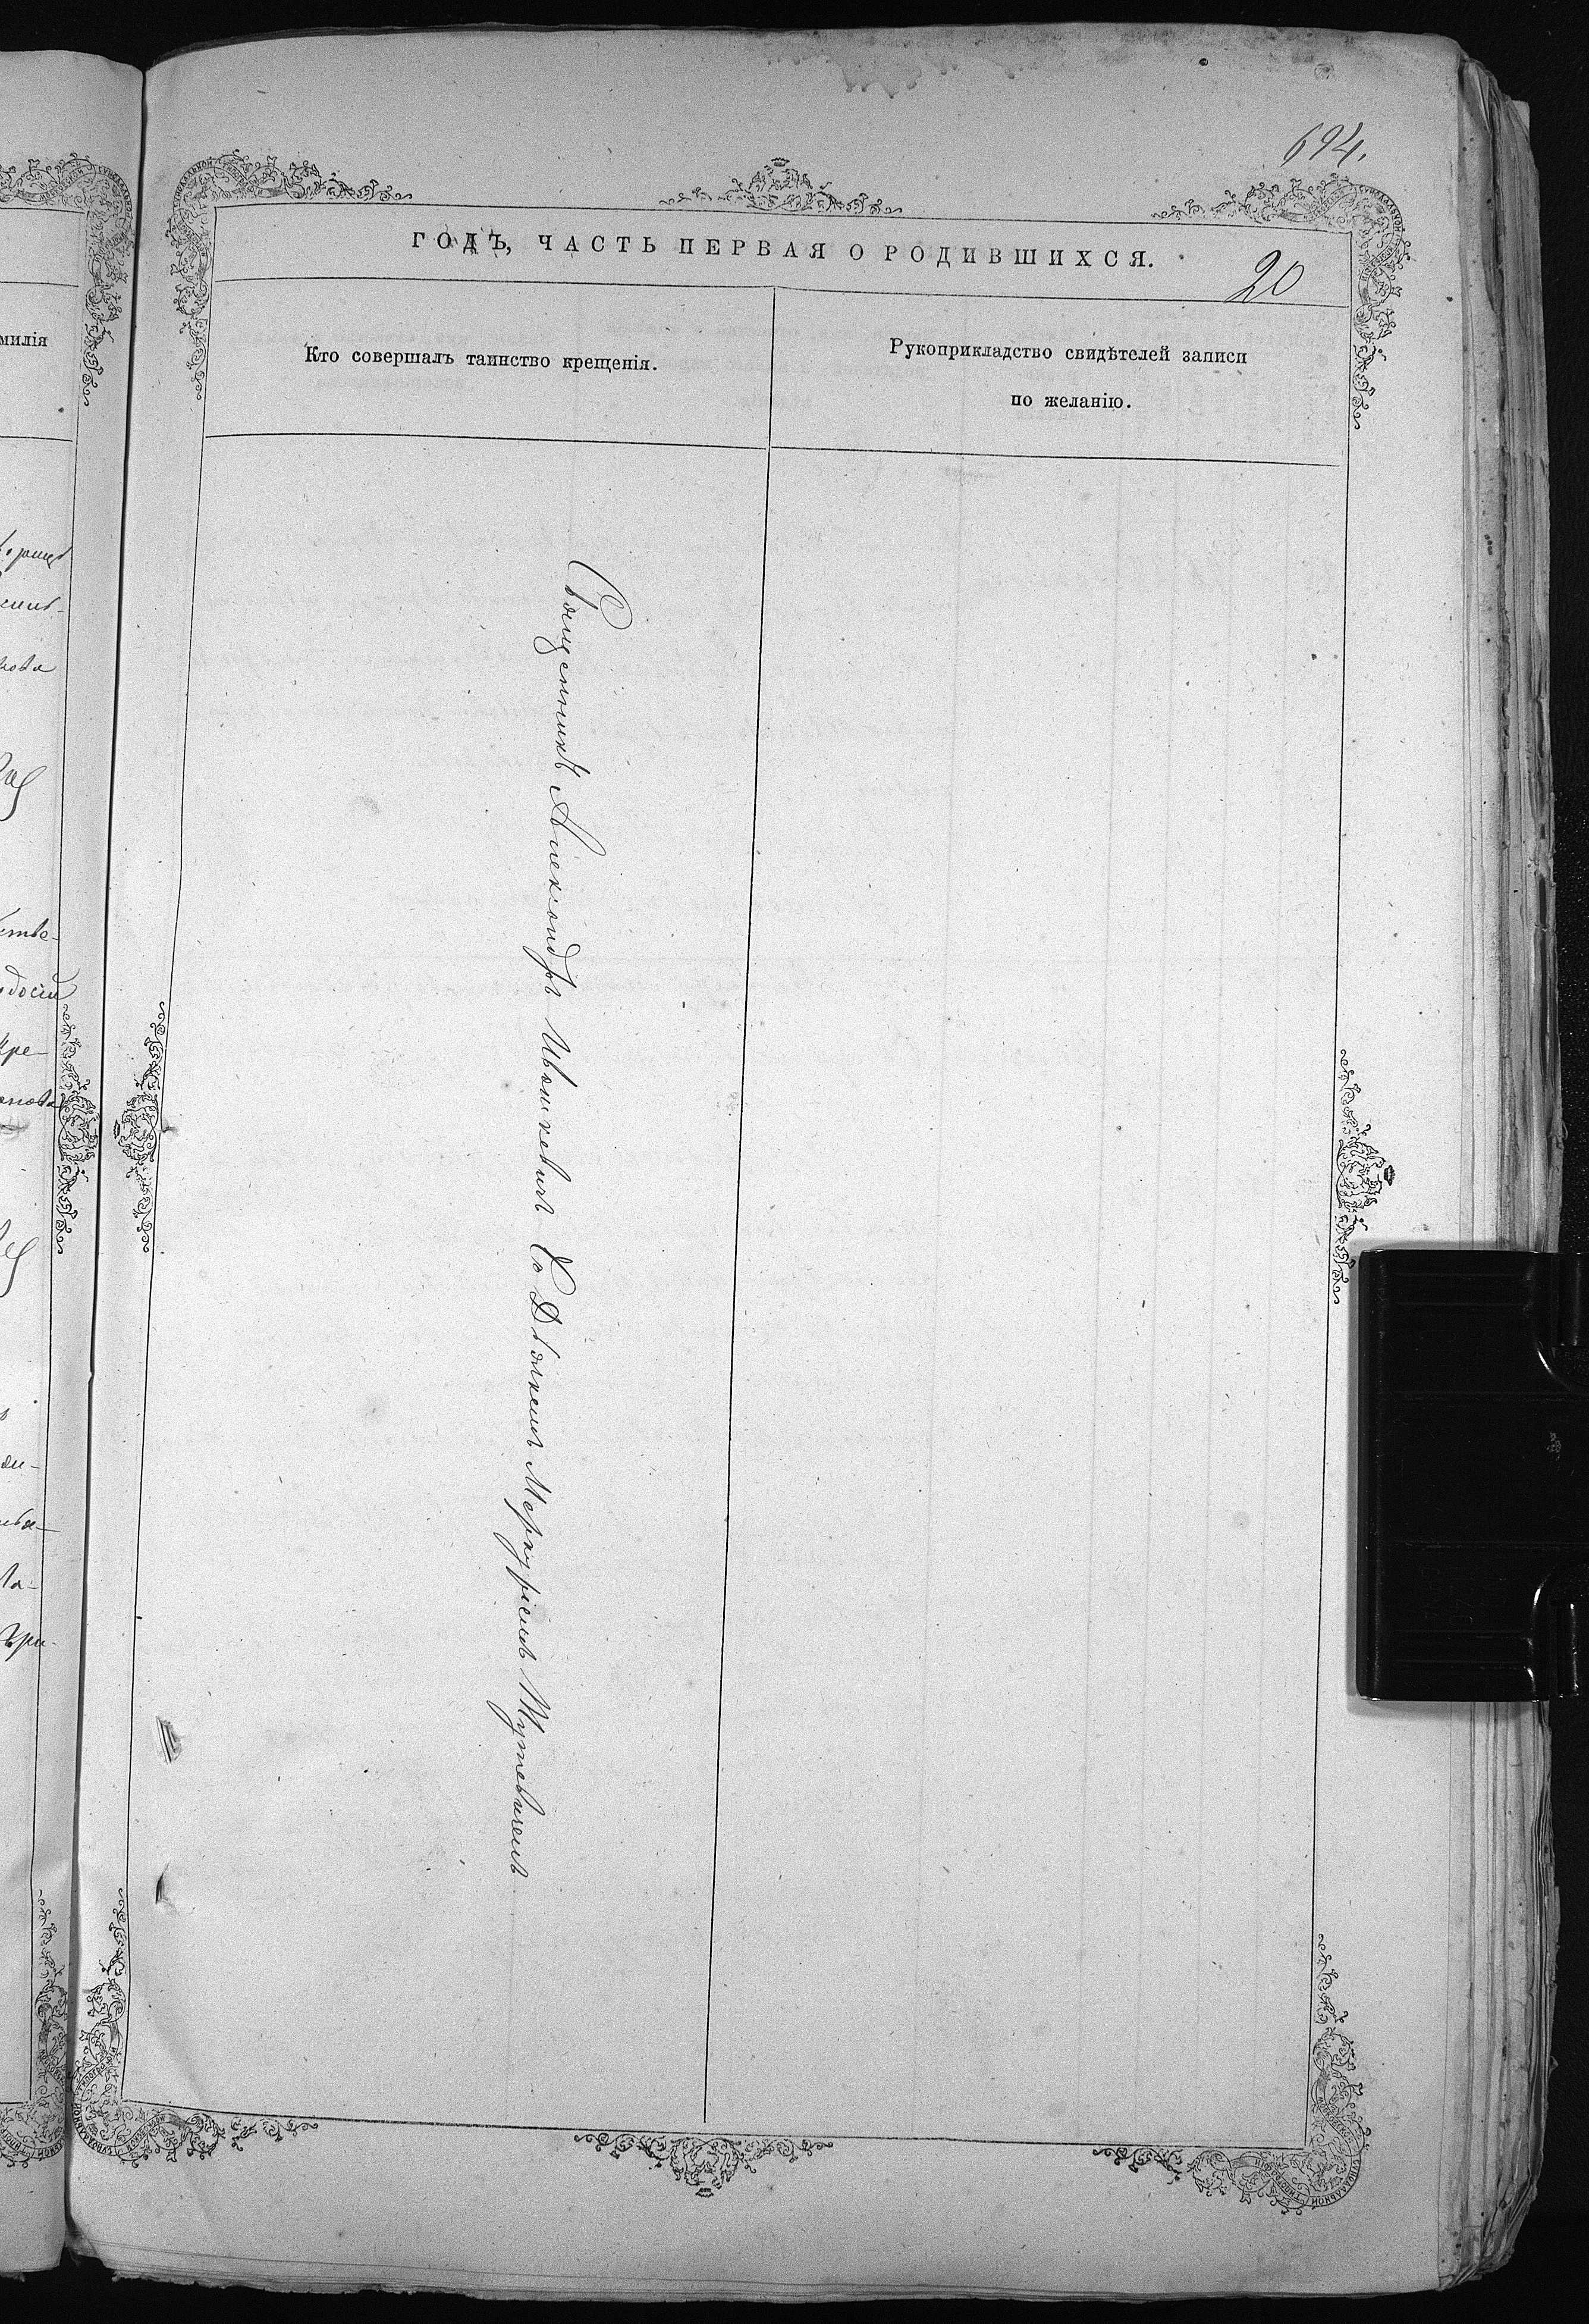 694.
ГОДЪ, ЧАСТЬ ПЕРВАЯ О РОДИВШИХСЯ.
20
милія
Кто совершалъ таинство крещенія.
Рукоприкладство свидѣтелей записи
по желанію.
Священникъ Александръ Ивашкевичъ Со Дьякомъ Меркуріемъ Шутевичемъ
кова
стве-
досій
Кре-
Гри-